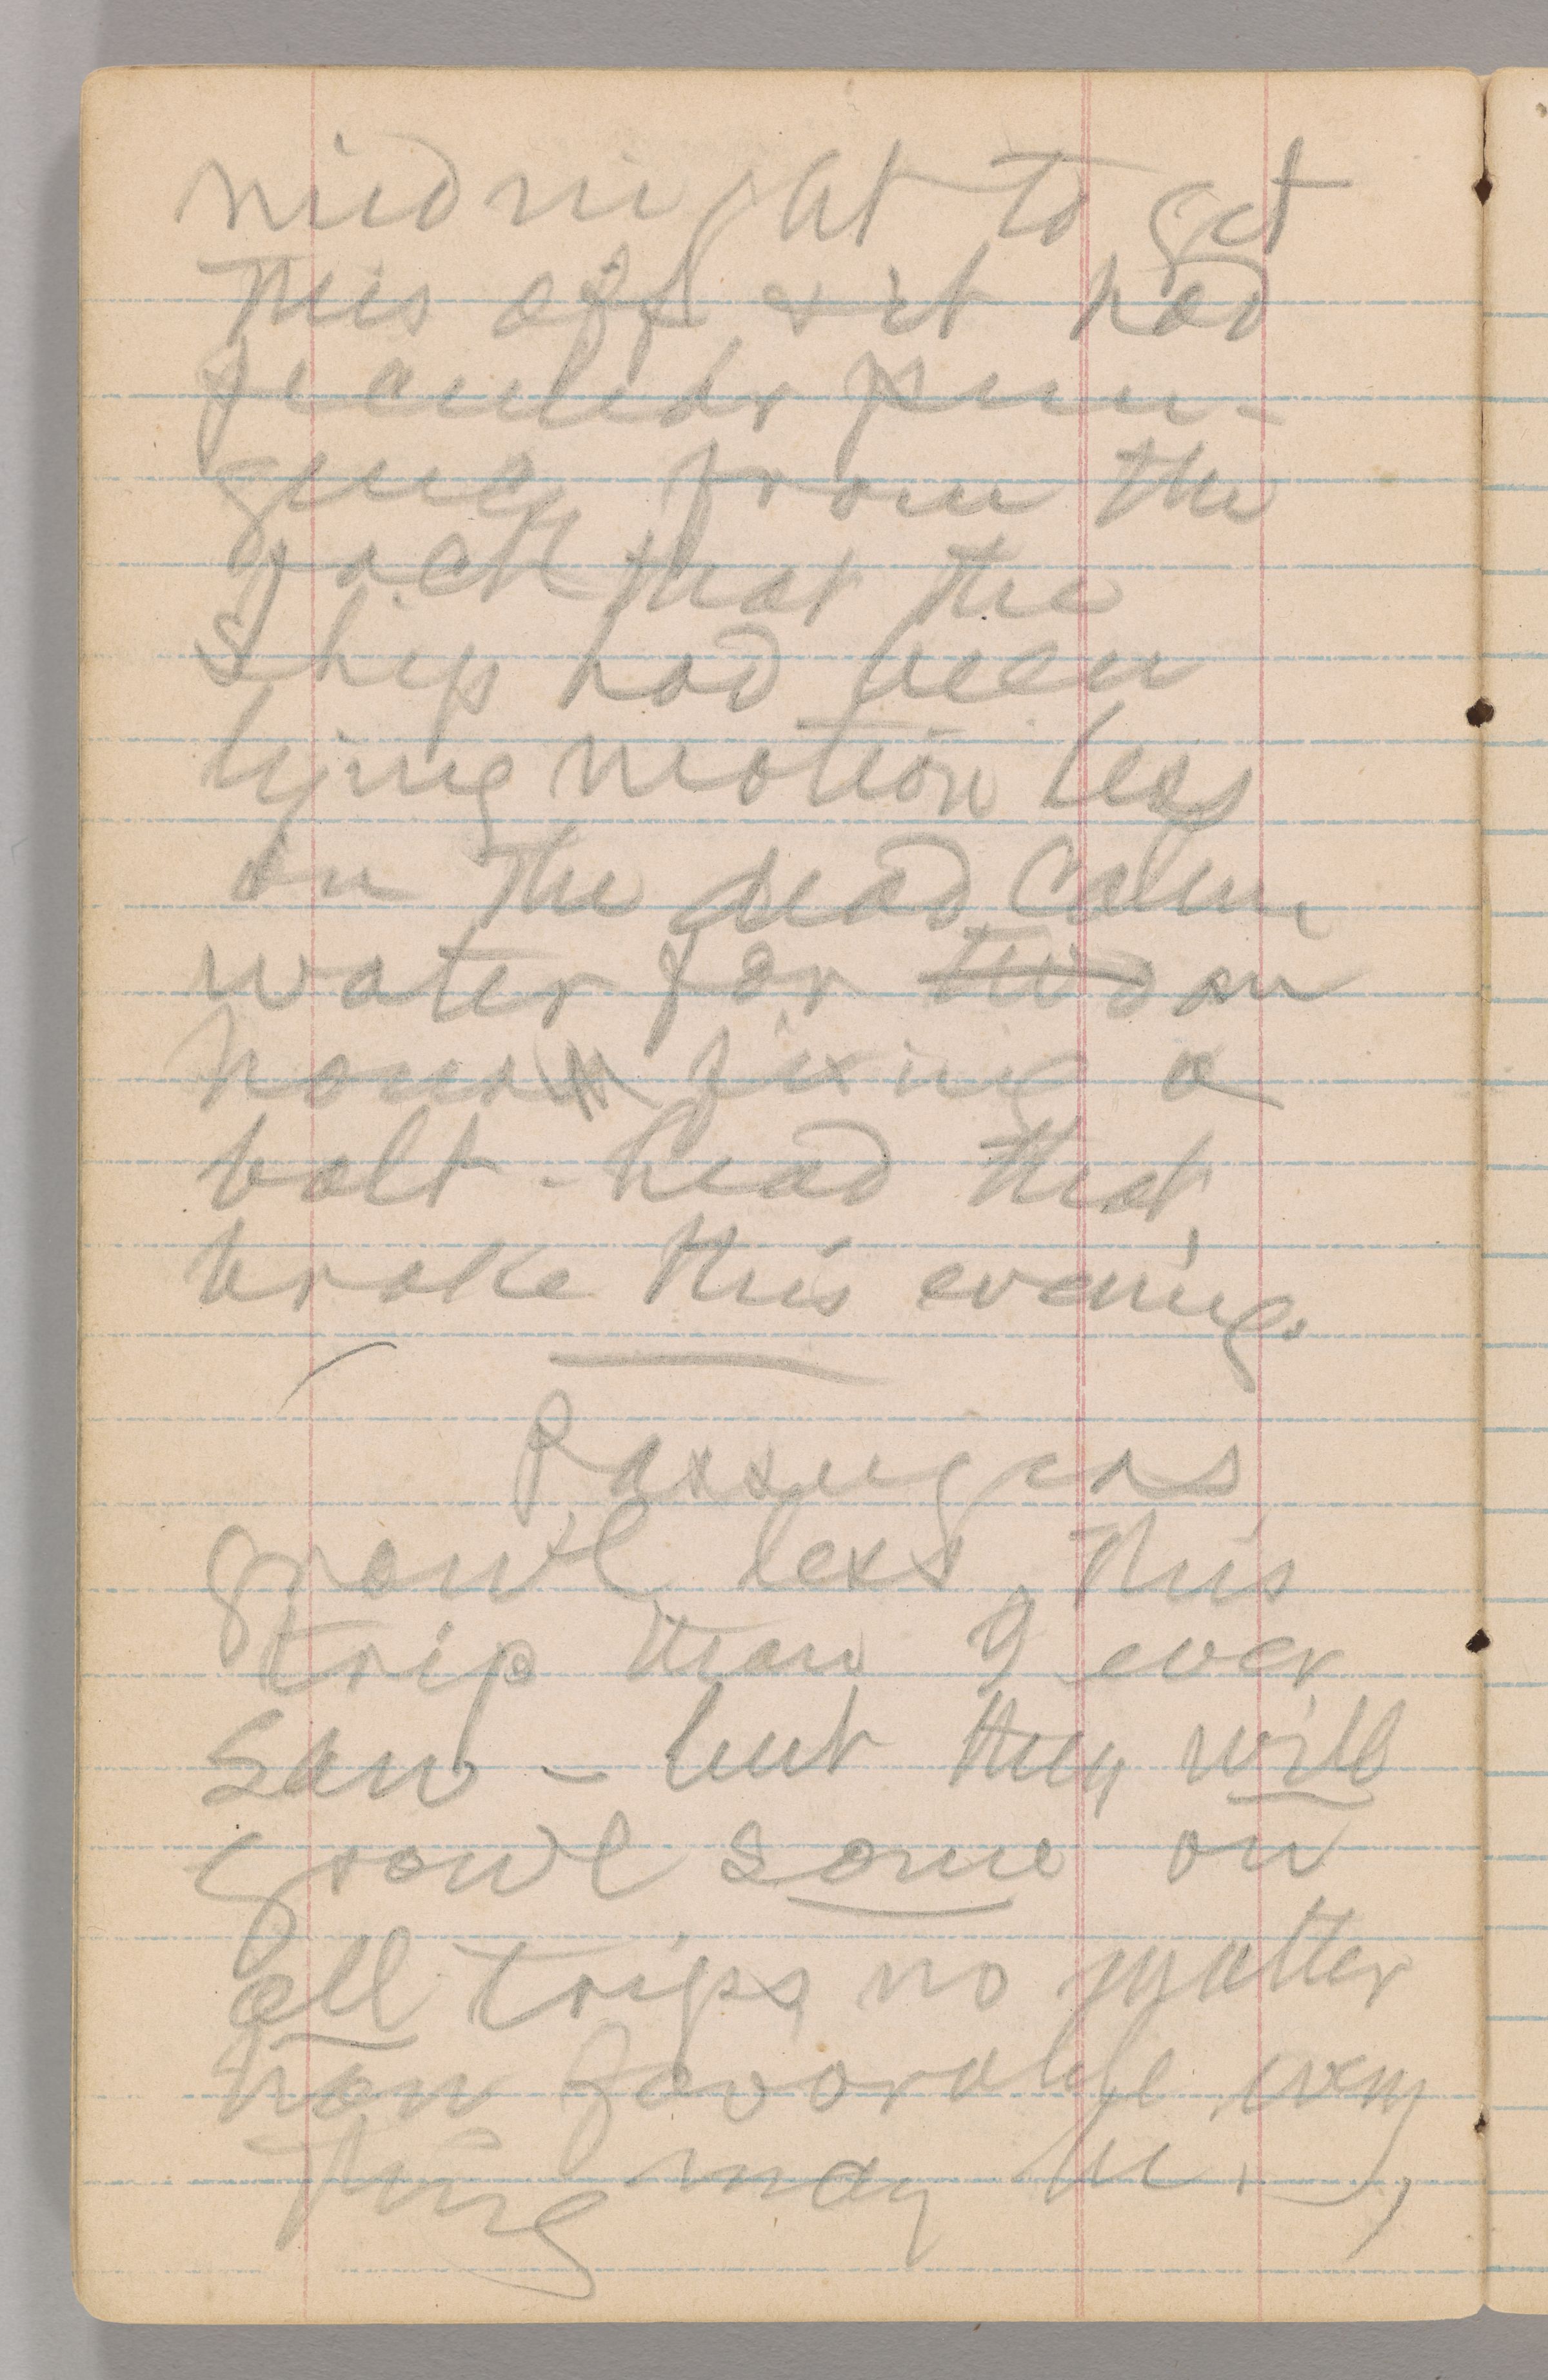 midnight to get
this off & it had
peculiar pun-
gency from the
fact that the
ship had been
lying motionless
on the dead calm
water for two an
hour fixing a
bolt-head that
broke this evening.
Passengers
growl less this
trip than I ever
saw – but they will
growl some on
all trips no matter
how favorable every
thing may be.